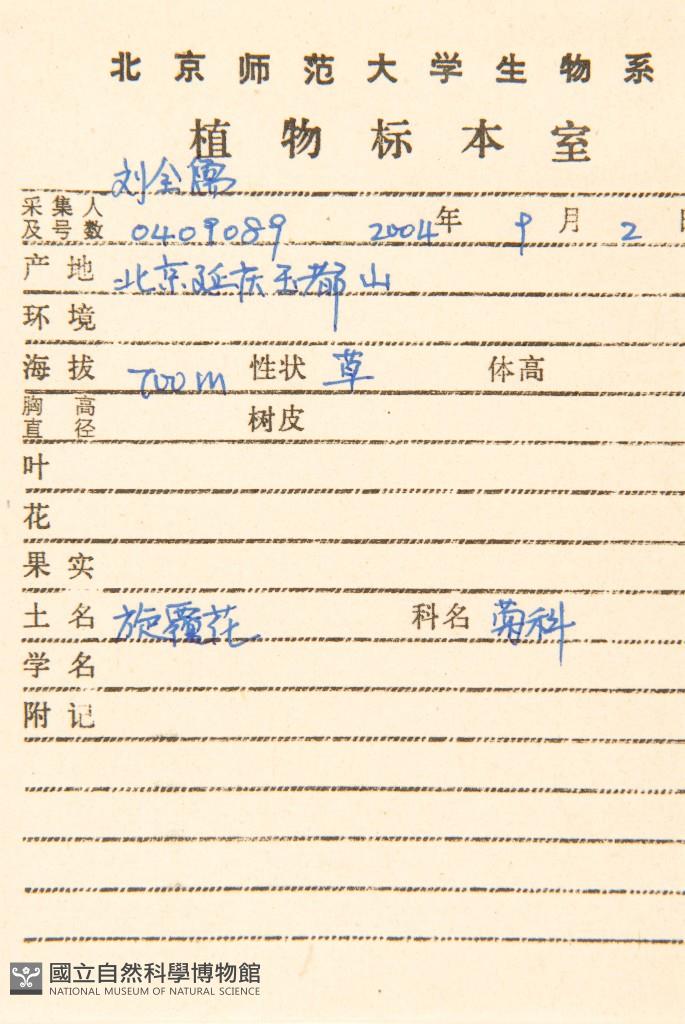 北京师范大学生物系
植物标本室
刘全儒
采集人及号数 0409089 2004年 9月 2日
产地 北京延庆玉都山
环境
海拔 700m 性状 草 体高
胸高直径 树皮
叶
花
果实
土名 旋覆花 科名 菊科
学名
附记
國立自然科學博物館
NATIONAL MUSEUM OF NATURAL SCIENCE